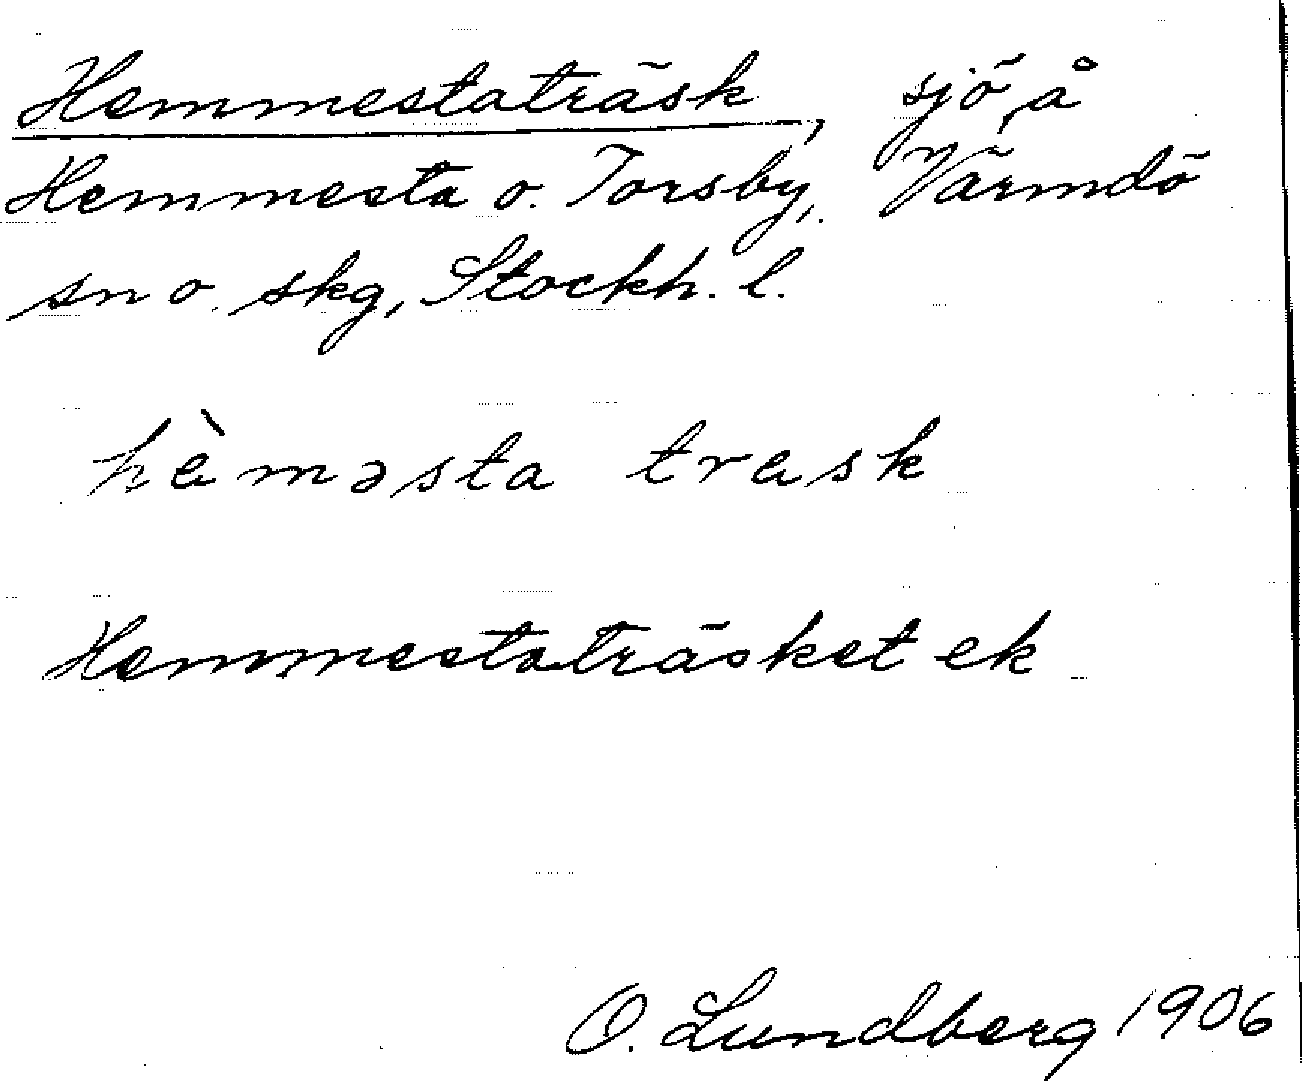 Hemmestaträsk, sjö, å
Hemmesta o. Torsby, Värmdö
sn o. skg, Stockh. l.
hèməsta trask
Hemmestaträsket ek
O. Lundberg 1906